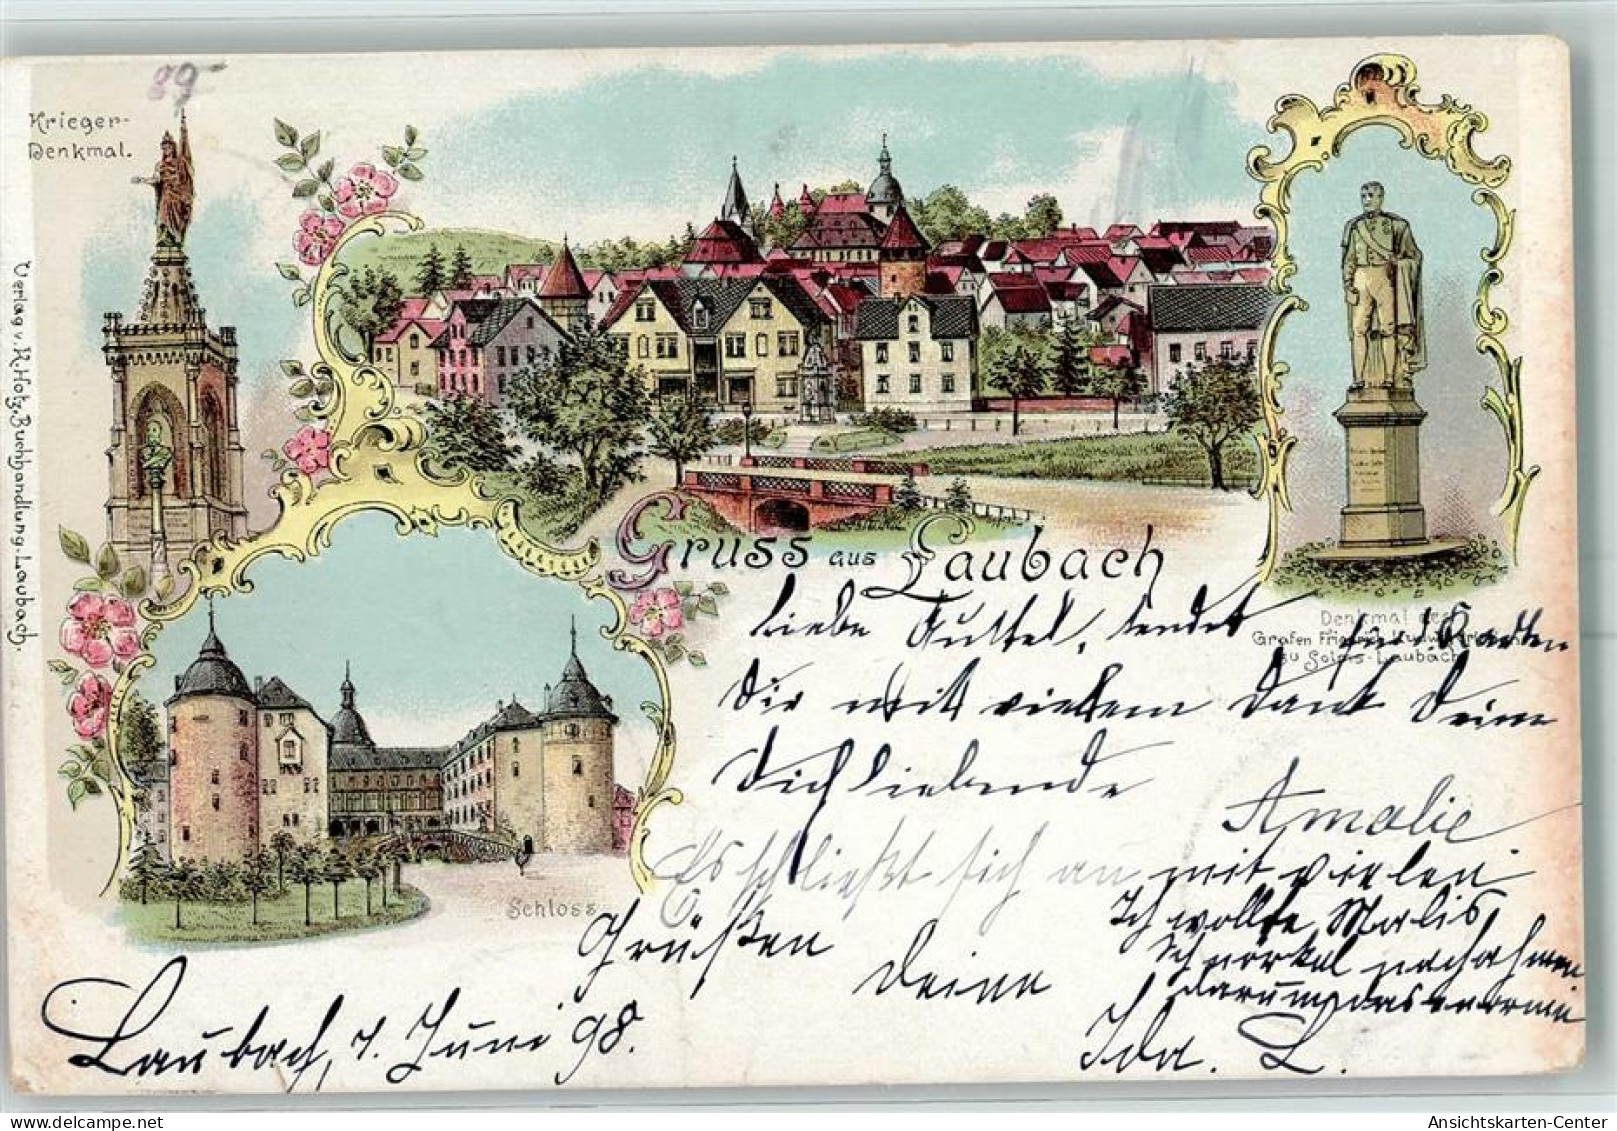 89
Krieger-
Denkmal.
Verlag v. K. Hotz, Buchhandlung-Laubach.
Gruss aus Laubach
Denkmal des
Grafen Friedrich Ludwig
zu Solms-Laubach
Schloss
Liebe sendet
Dir mit vielem Dank Deine
Dich liebende
Amalie
Es schließt sich an mit vielen
Grüßen Deine
Ich wollte Malis
Schnörkel nachahmen
darum das
Ida. L.
Laubach, 7. Juni 98.
Ansichtskarten-Center